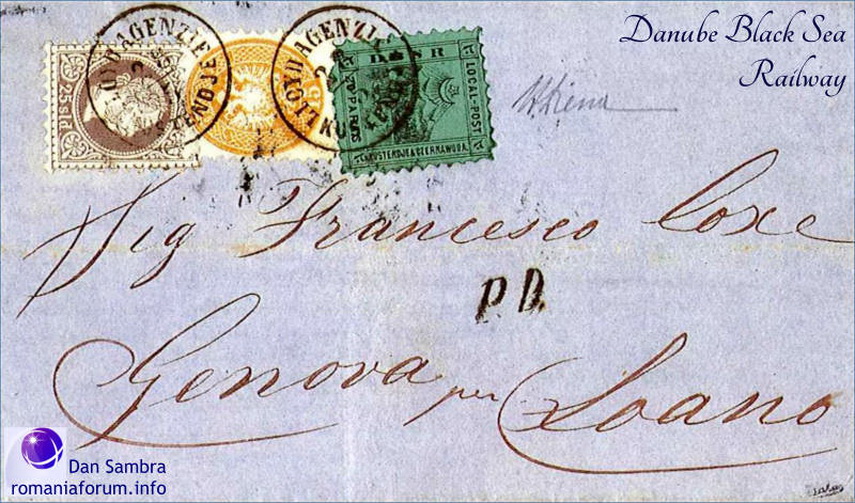 Danube Black Sea
Railway
25 sld
AGENZIE
KUSTENDJE
LLOYD AGENZIE
KUSTENDJE
D B S R
LOCAL-POST
20 PARAS
KUSTENDJE & CZERNAWODA
Sig Francesco Coxe
P.D.
Genova per Loano
Dan Sambra
romaniaforum.info